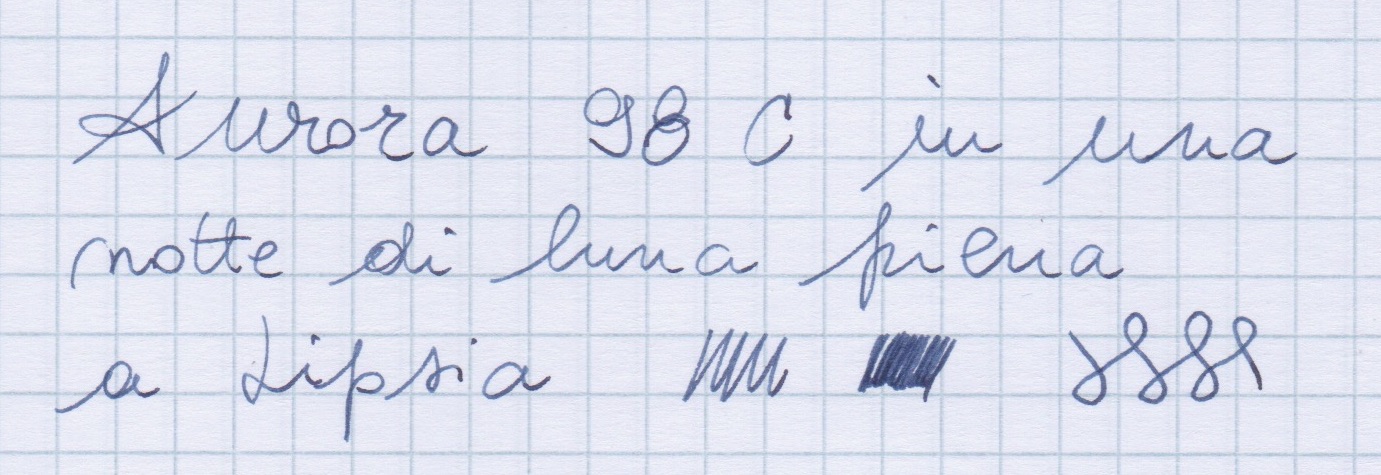 Aurora 98 C in una
notte di luna piena
a Lipsia